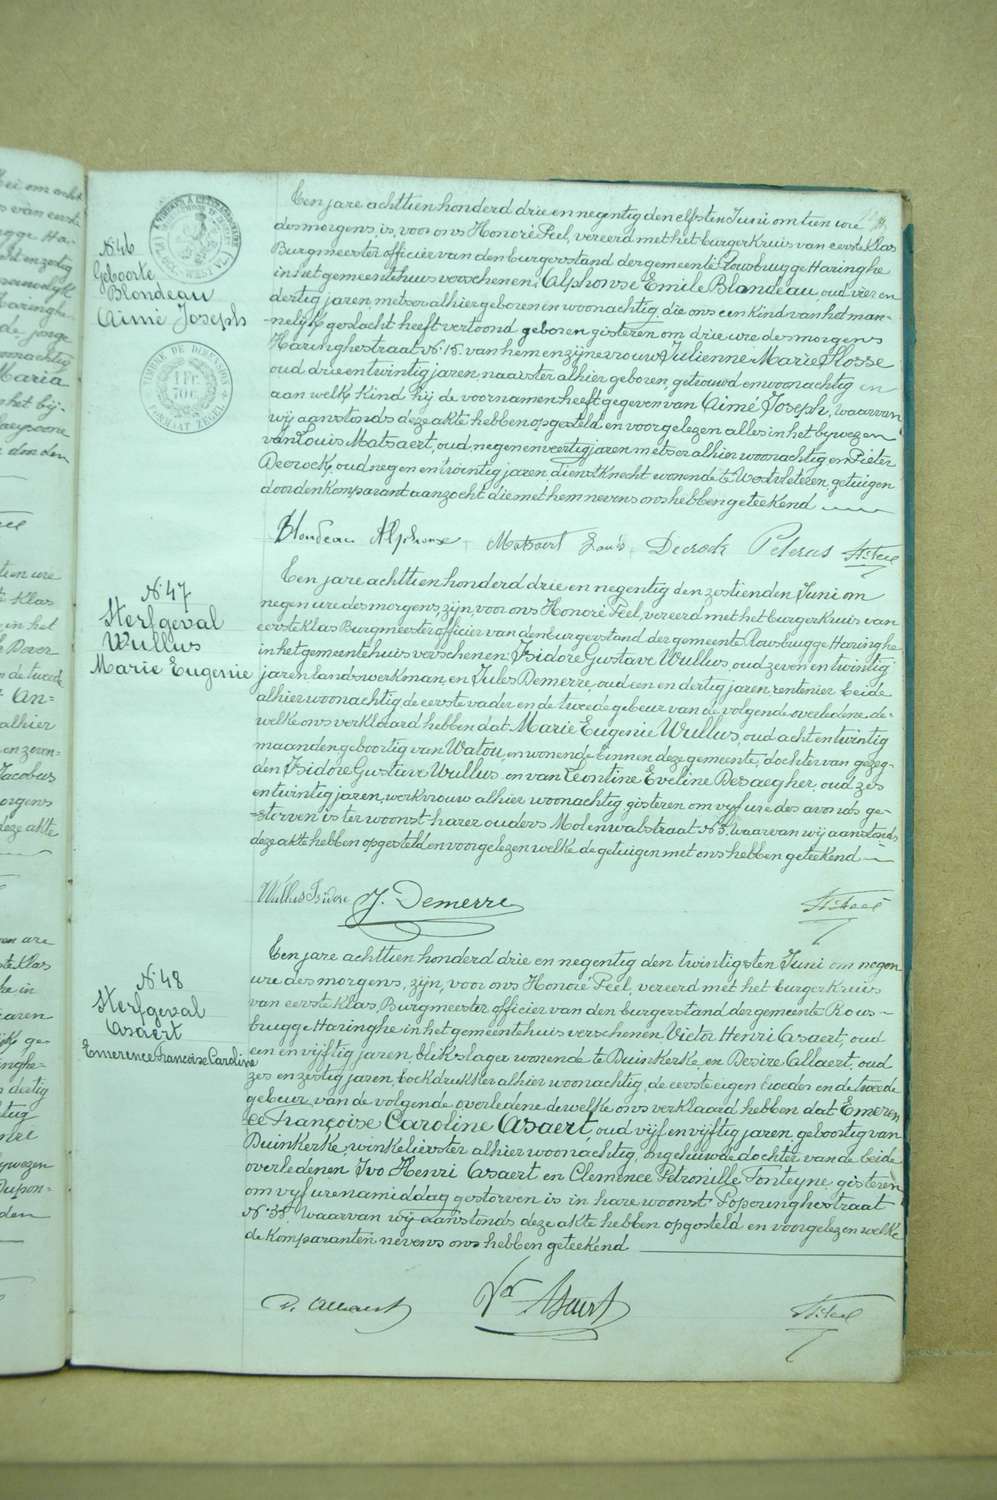 N. 46
Geboorte
Blondeau
Aimé Joseph
TIMBRE DE DIMENSION
1 FR.
70 C.
FORMAAT ZEGEL
Een jare achttien honderd drie en negentig den elfsten Juni om tien ure
des morgens, is, voor ons Honoré Peel, vereerd met het burgerkruis van eerste klas
Burgmeester officier van den burgerstand der gemeente Rousbrugge Haringhe
in het gemeentehuis verschenen, Alphonse Emile Blondeau, oud vier en
dertig jaren metser alhier geboren en woonachtig, die ons een kind van het man-
-nelijk geslacht heeft vertoond geboren gisteren om drie ure des morgens
Haringhestraat N. 15. van hem en zijne vrouw Julienne Marie Plosse
oud drie en twintig jaren, naaister alhier geboren, getrouwd en woonachtig en
aan welk kind hij de voornamen heeft gegeven van Aimé Joseph, waarvan
wij aanstonds deze akte hebben opgesteld en voorgelezen alles in het bywezen
van Louis Matsaert, oud negen en veertig jaren metser alhier woonachtig en Pieter
Decrock, oud negen en twintig jaren dienstknecht wonende te Westvleteren, getuigen
door den komparant aanzocht die met hem nevens ons hebben geteekend
Blondeau Alphonse Matsaert Louis Decrock Peterus
N. 47
Sterfgeval
Wullus
Marie Eugenie
Een jare achttien honderd drie en negentig den zestienden Juni om
negen ure des morgens, zijn, voor ons Honoré Peel, vereerd met het burgerkruis van
eerste klas Burgmeester officier van den burgerstand der gemeente Rousbrugge Haringhe
in het gemeentehuis verschenen: Isidore Gustave Wullus, oud zeven en twintig
jaren landswerkman, en Jules Demerre, oud een en dertig jaren rentenier beide
alhier woonachtig de eerste vader en de tweede gebeur van de volgende overledene, de-
welke ons verklaard hebben dat Marie Eugenie Wullus, oud acht en twintig
maanden, geboortig van Watou, en wonende binnen deze gemeente, dochter van gezeg-
den Isidore Gustave Wullus en van Leontine Eveline Desaegher, oud zes
en twintig jaren, werkvrouw alhier woonachtig gisteren om vyf ure des avonds ge-
-storven is ter woonst harer ouders Molenwalstraat N. 5. waarvan wij aanstonds
deze akte hebben opgesteld en voorgelezen welke de getuigen met ons hebben geteekend
Wullus Isidore J. Demerre
N. 48
Sterfgeval
Asaert
Emerence Françoise Caroline
Een jare achttien honderd drie en negentig den twintigsten Juni om negen
ure des morgens, zijn, voor ons Honoré Peel, vereerd met het burgerkruis
van eerste klas, Burgmeester officier van den burgerstand der gemeente Rous-
brugge Haringhe in het gemeentehuis verschenen Victor Henri Asaert, oud
een en vijftig jaren, blikslager wonende te Duinkerke, en Desire Allaert, oud
zes en zestig jaren, boekdrukker alhier woonachtig, de eerste eigen broeder en de tweede
gebeur van de volgende overledene de welke ons verklaard hebben dat Emeren
ce Françoise Caroline Asaert, oud vijf en vijftig jaren, geboortig van
Duinkerke, winkelierster alhier woonachtig, ongehuwde dochter van de beide
overledenen Ivo Henri Asaert en Clemence Petronille Fonteyne, gisteren
om vyf ure namiddag gestorven is in hare woonst Poperinghestraat
N. 35. waarvan wij aanstonds deze akte hebben opgesteld en voorgelezen welke
de komparanten nevens ons hebben geteekend
D. Allaert Vor Asaert